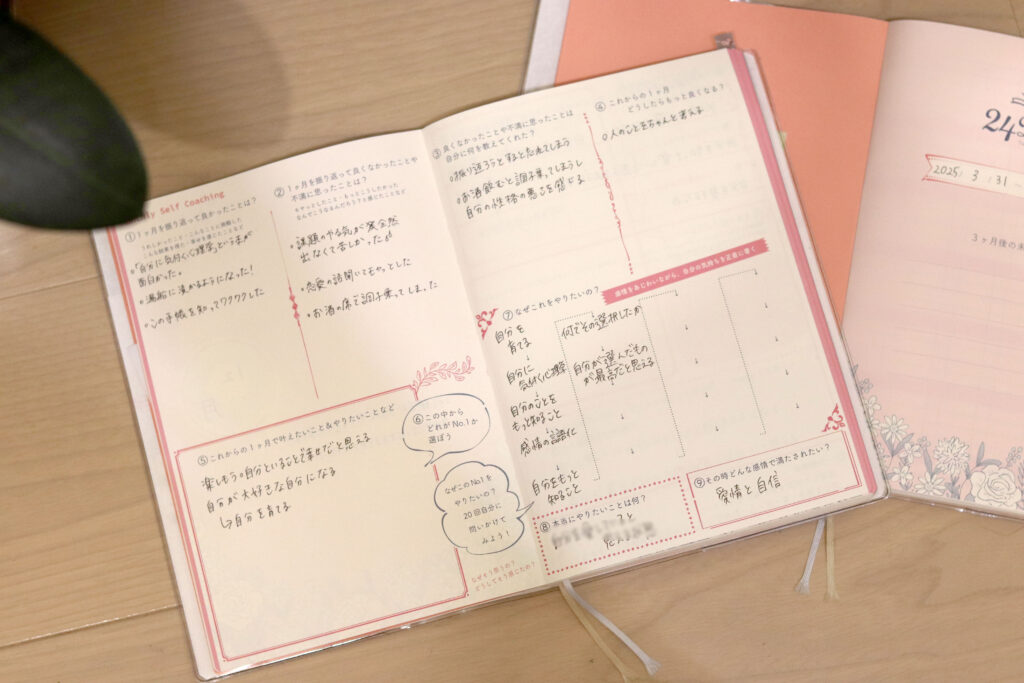 ly Self Coaching
①1ヶ月を振り返って良かったことは?
うれしかったこと・こんなことに挑戦した
こんな結果を得た・幸せを感じたことなど
・「自分に気付く心理学」という本が
面白かった。
・湯船に浸かるようになった!
・この手帳を知ってワクワクした
②1ヶ月を振り返って良くなかったことや
不満に思ったことは?
モヤっとしたこと・もっとこうしたかった
なんでこうなるんだろう?と感じたことなど
・課題のやる気が全然
出なくて苦しかった
・恋愛の話聞いてもやっとした
・お酒の席で調子乗ってしまった
③良くなかったことや不満に思ったことは
自分に何を教えてくれた?
・振り返ろうとすると忘れてしまう
・お酒飲むと調子乗ってしまうし
自分の性格の悪さを感じる
④これからの1ヶ月
どうしたらもっと良くなる?
・人のことをちゃんと考える
⑤これからの1ヶ月で叶えたいこと&やりたいことなど
楽しもう。自分といることで幸せだと思える
自分が大好きな自分になる
↳自分を育てる
⑥この中から
どれがNo.1か
選ぼう
なぜこのNo.1を
やりたいの?
20回自分に
問いかけて
みよう!
なぜそう思うの?
どうしてそう感じたの?
感情をあじわいながら、自分の気持ちを正直に書く
⑦なぜこれをやりたいの?
自分を
育てる
↓
自分に
気付く心理学
↓
自分のことを
もっと知ること
↓
感情の言語化
↓
自分をもっと
知ること
何でその選択したか
↓
自分が選んだもの
が最高だと思える
⑧本当にやりたいことは何?
こと
⑨その時どんな感情で満たされたい?
愛情と自信
24
2025. 3. 31 ~
3ヶ月後の未